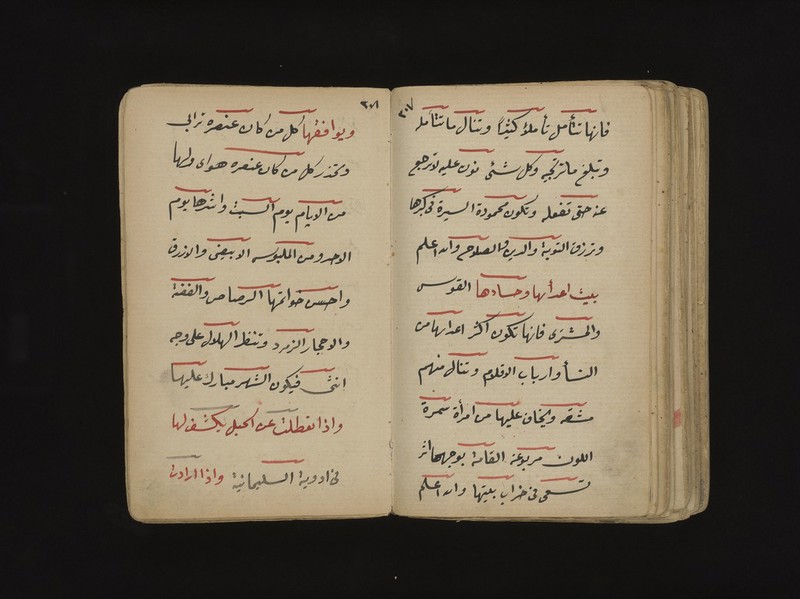 ٣٠٧
فانها تتأمل تأملاً كثيرًا وتنال ما تتأمله
وتبلغ ما ترتجيه وكل شئ نون عليه لا ترجع
عنه حتى تفعله وتكون محمودة السيرة في كبرها
وترزق التوبة والدين والصلاح والله اعلم
بيت اعدائها وحسادها القوس
والمشترى فانها تكون اكثر اعدائها من
النسأ وارباب الاقلام وتنال منهم
مشقه ويخاف عليها من امرأة سمرة
اللون مربوعة القامة بوجهها اثر
تسعى في خراب بيتها والله اعلم
٣٠٨
ويوافقها كل من كان عنصره ترابي
وتحذر كل من كان عنصره هوائي ولها
من الايام يوم السبت واشدها يوم
الاحد ومن الملبوس الابيض والازرق
واحسن خواتمها الرصاص والفضة
والاحجار الزمرد وتنظر الهلال على وجه
انثى فيكون الشهر مبارك عليها
واذا تعطلت عن الحبل يكشف لها
في ادوية السليمانية واذا ارادت